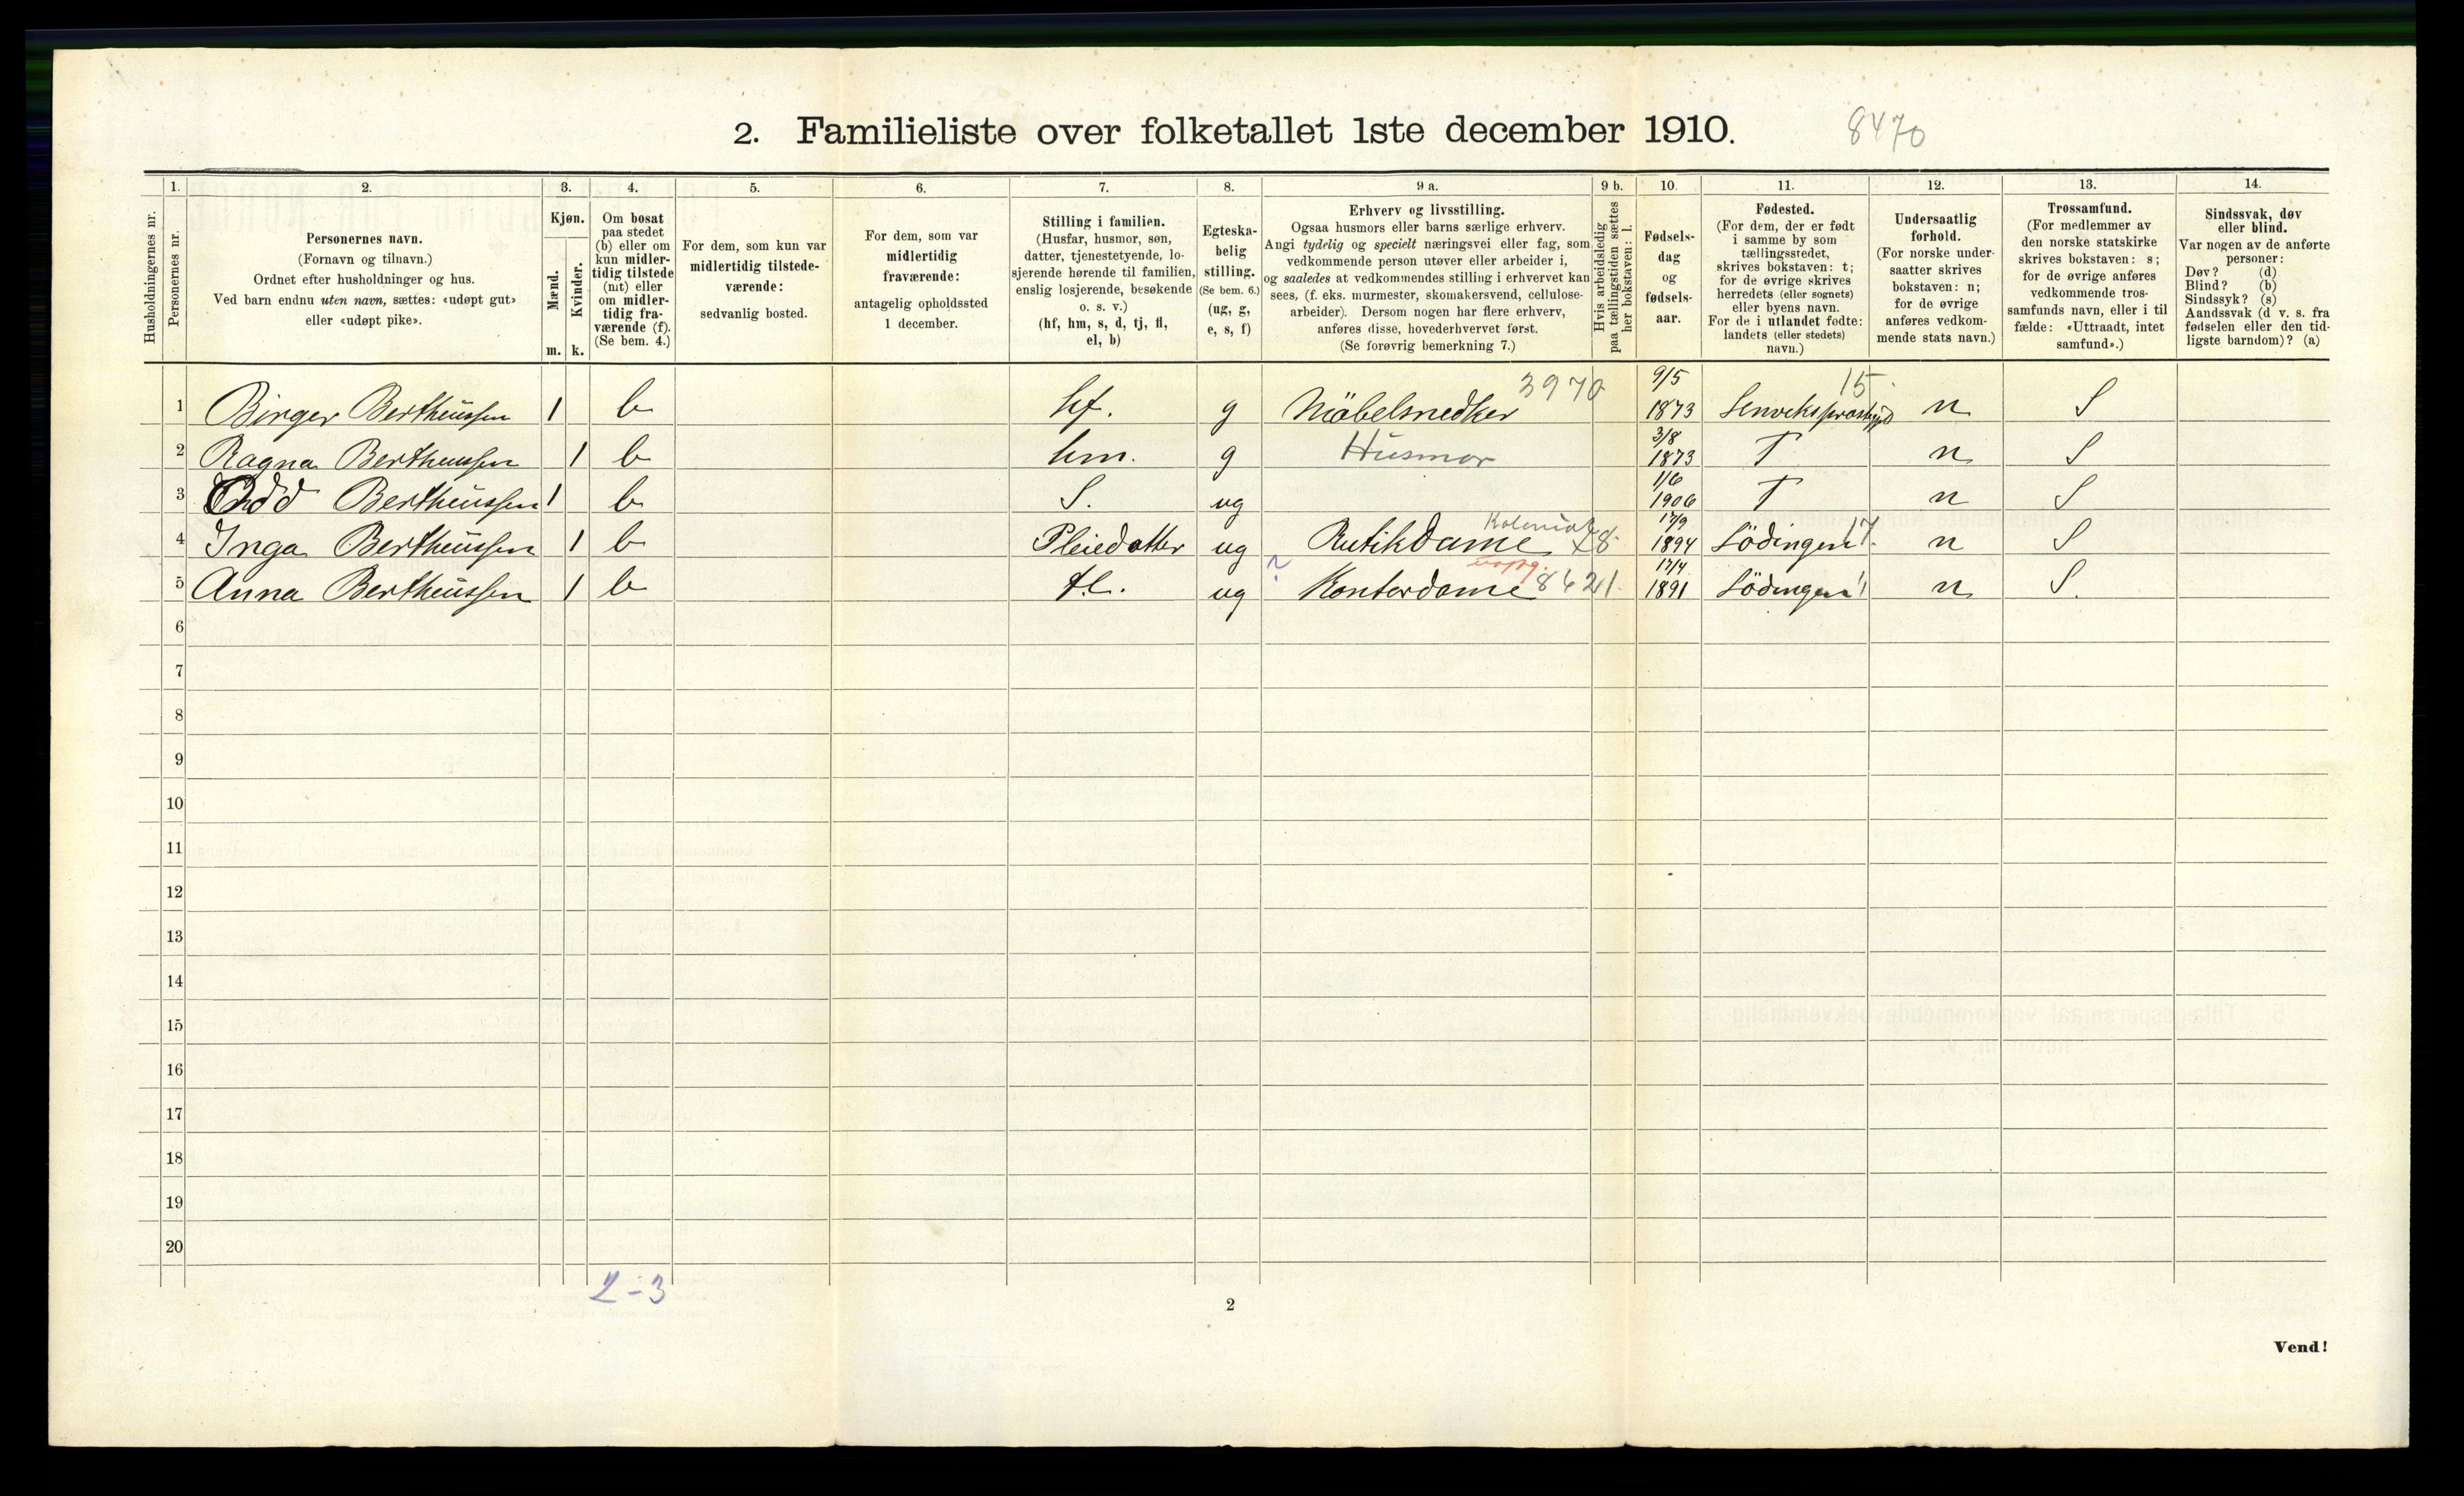 2. Familieliste over folketallet 1ste december 1910. 8470
1. 2. 3. 4. 5. 6. 7. 8. 9 a. 9 b. 10. 11. 12. 13. 14.
Husholdningernes nr.
Personernes nr.
Personernes navn.
(Fornavn og tilnavn.)
Ordnet efter husholdninger og hus.
Ved barn endnu uten navn, sættes: «udøpt gut»
eller «udøpt pike».
Kjøn.
Mænd.
Kvinder.
m. k.
Om bosat
paa stedet
(b) eller om
kun midler-
tidig tilstede
(mt) eller
om midler-
tidig fra-
værende (f).
(Se bem. 4.)
For dem, som kun var
midlertidig tilstede-
værende:
sedvanlig bosted.
For dem, som var
midlertidig
fraværende:
antagelig opholdssted
1 december.
Stilling i familien.
(Husfar, husmor, søn,
datter, tjenestetyende, lo-
sjerende hørende til familien,
enslig losjerende, besøkende
o. s. v.)
(hf, hm, s, d, tj, fl,
el, b)
Egteska-
belig
stilling.
(Se bem. 6.)
(ug, g,
e, s, f)
Erhverv og livsstilling.
Ogsaa husmors eller barns særlige erhverv.
Angi tydelig og specielt næringsvei eller fag, som
vedkommende person utøver eller arbeider i,
og saaledes at vedkommendes stilling i erhvervet kan
sees, (f. eks. murmester, skomakersvend, cellulose-
arbeider). Dersom nogen har flere erhverv,
anføres disse, hovederhvervet først.
(Se forøvrig bemerkning 7.)
Hvis arbeidsledig
paa tællingstiden sættes
her bokstaven: l.
Fødsels-
dag
og
fødsels-
aar.
Fødested.
(For dem, der er født
i samme by som
tællingsstedet,
skrives bokstaven: t;
for de øvrige skrives
herredets (eller sognets)
eller byens navn.
For de i utlandet fødte:
landets (eller stedets)
navn.)
Undersaatlig
forhold.
(For norske under-
saatter skrives
bokstaven: n;
for de øvrige
anføres vedkom-
mende stats navn.)
Trossamfund.
(For medlemmer av
den norske statskirke
skrives bokstaven: s;
for de øvrige anføres
vedkommende tros-
samfunds navn, eller i til
fælde: «Uttraadt, intet
samfund».)
Sindssvak, døv
eller blind.
Var nogen av de anførte
personer:
Døv? (d)
Blind? (b)
Sindssyk? (s)
Aandssvak (d v. s. fra
fødselen eller den tid-
ligste barndom)? (a)
1 Birger Bertheussen 1 b hf. g Møbelsnedker 3970 9/5 1873 15 n S
2 Ragna Bertheussen 1 b hm. g Husmor 3/8 1873 T n S
3 Odd Bertheussen 1 b S. ug 1/6 1906 T n S
4 Inga Bertheussen 1 b Pleiedatter ug Butikdame Kolonial 17/9 1894 Lödingen 17 n S
5 Anna Bertheussen 1 b fl. ug ? Kontordame 8621 17/4 1891 Lödingen n S.
6
7
8
9
10
11
12
13
14
15
16
17
18
19
20
2-3
2
Vend!